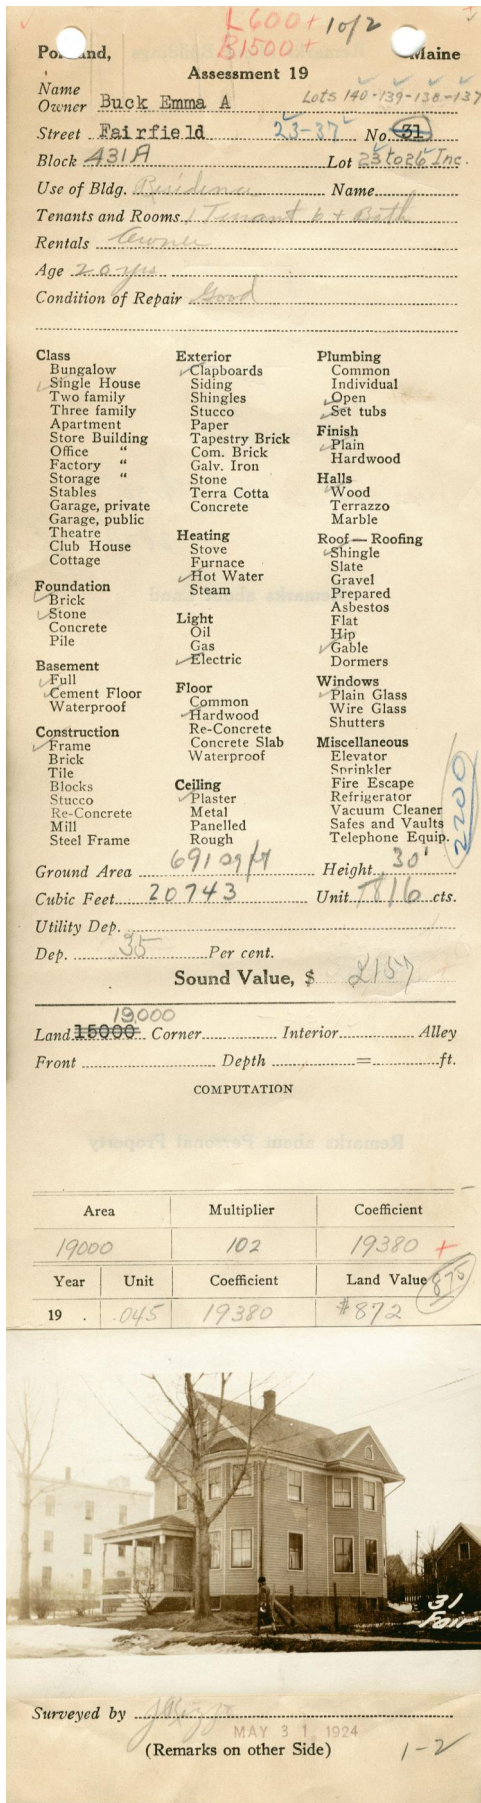 L600+ 1 of 2
B1500+
Portland, Maine
Assessment 19
Name
Owner Buck Emma A Lots 140-139-138-137
Street Fairfield 23-37 No. 31
Block 431A Lot 23 to 26 Inc.
Use of Bldg. Residence Name
Tenants and Rooms 1 Tenant 6 + Bath
Rentals Owner
Age 20 yrs
Condition of Repair Good
Class
Bungalow
Single House
Two family
Three family
Apartment
Store Building
Office "
Factory "
Storage "
Stables
Garage, private
Garage, public
Theatre
Club House
Cottage
Foundation
Brick
Stone
Concrete
Pile
Basement
Full
Cement Floor
Waterproof
Construction
Frame
Brick
Tile
Blocks
Stucco
Re-Concrete
Mill
Steel Frame
Exterior
Clapboards
Siding
Shingles
Stucco
Paper
Tapestry Brick
Com. Brick
Galv. Iron
Stone
Terra Cotta
Concrete
Heating
Stove
Furnace
Hot Water
Steam
Light
Oil
Gas
Electric
Floor
Common
Hardwood
Re-Concrete
Concrete Slab
Waterproof
Ceiling
Plaster
Metal
Panelled
Rough
Plumbing
Common
Individual
Open
Set tubs
Finish
Plain
Hardwood
Halls
Wood
Terrazzo
Marble
Roof—Roofing
Shingle
Slate
Gravel
Prepared
Asbestos
Flat
Hip
Gable
Dormers
Windows
Plain Glass
Wire Glass
Shutters
Miscellaneous
Elevator
Sprinkler
Fire Escape
Refrigerator
Vacuum Cleaner
Safes and Vaults
Telephone Equip.
2200
Ground Area 691 sq ft Height 30'
Cubic Feet 20743 Unit 16 cts.
Utility Dep.
Dep. 35 Per cent.
Sound Value, $ 2157
19,000
Land 15000 Corner Interior Alley
Front Depth = ft.
COMPUTATION
Remarks about Personal Property
Area Multiplier Coefficient
19000 102 19380 +
Year Unit Coefficient Land Value 875
19 . .045 19380 $872
31
Fair
Surveyed by
MAY 31 1924
(Remarks on other Side) 1-2